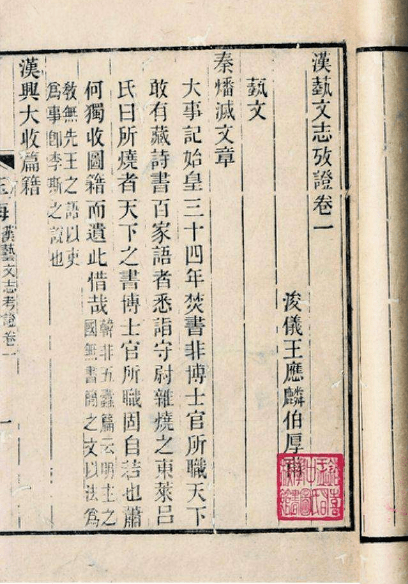 漢藝文志攷證卷一
浚儀王應麟伯厚甫
藝文
秦燔滅文章
大事記始皇三十四年焚書非博士官所職天下
敢有藏詩書百家語者悉詣守尉雜燒之東萊呂
氏曰所燒者天下之書博士官所職固自若也蕭
何獨收圖籍而遺此惜哉
韓非五蠹篇云明主之
國無書簡之文以法爲
教無先王之語以吏
爲事卽李斯之說也
漢興大收篇籍
玉海
漢藝文志考證卷一
一